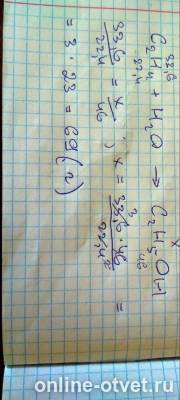 33,6                    x
C₂H₄ + H₂O → C₂H₅-OH
22,4                    46
33,6/22,4 = x/46 ; x = 33,6 · 46/22,4 =
3 2
= 3 · 23 = 69 (г)
online-otvet.ru